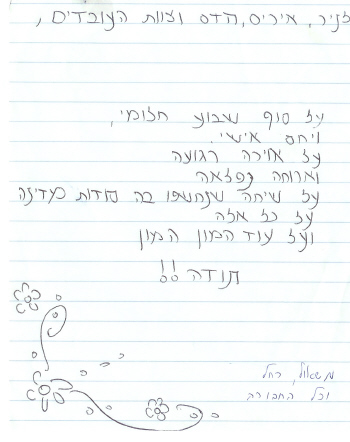 לניר, איריס, הדס וצוות העובדים,
על סוף שבוע חלומי,
ויחס אישי.
על אוירה רגועה
וארוחה נפלאה
על שיחה שנחשפו בה סודות מדינה
על כל אלה
ועל עוד המון המון
תודה!!
משאול, רחל
וכל החבורה